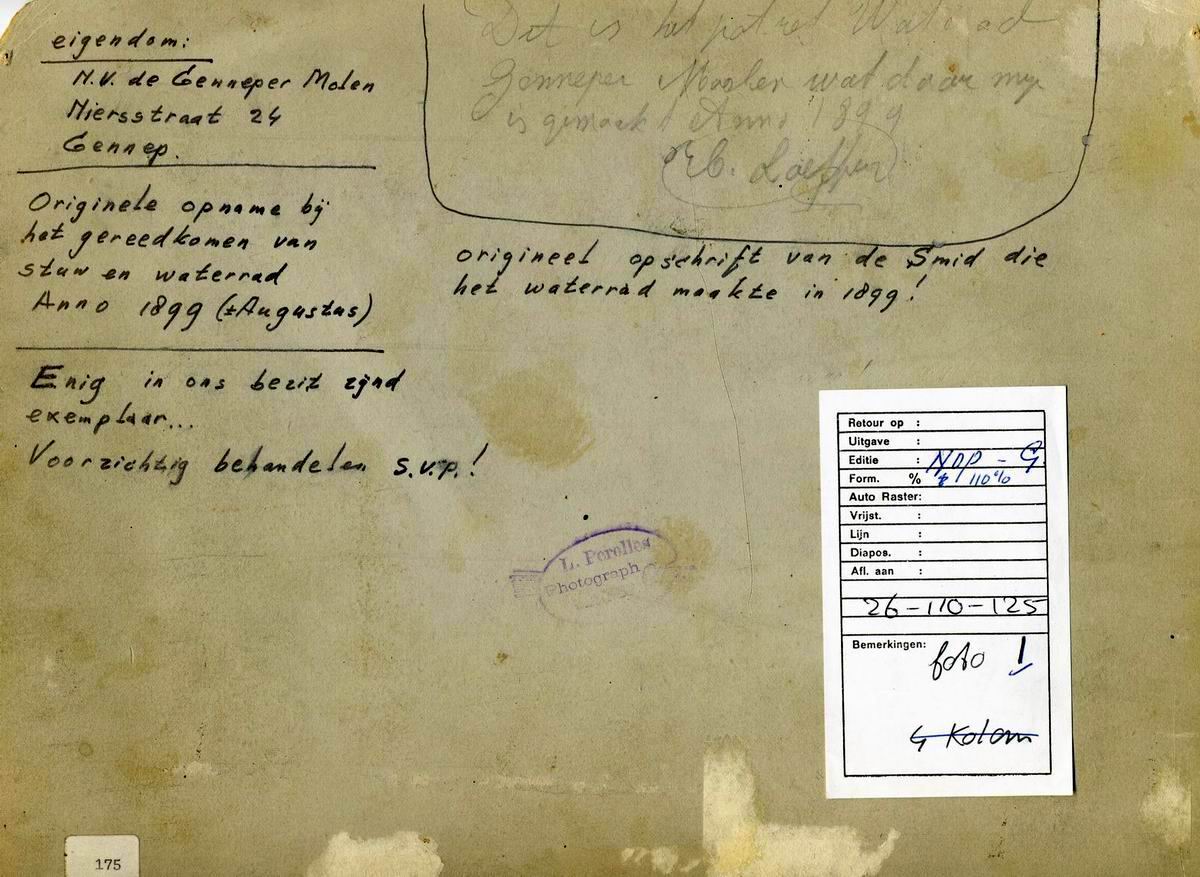 eigendom:
N.V. de Genneper Molen
Niersstraat 24
Gennep.
Originele opname bij
het gereedkomen van
stuw en waterrad
Anno 1899 (±Augustus)
Enig in ons bezit zijnd
exemplaar...
Voorzichtig behandelen s.v.p.!
Dit is het
Genneper wat door my
is gemaakt Anno 1899
origineel opschrift van de Smid die
het waterrad maakte in 1899!
L. Perelles
Photograph
Retour op :
Uitgave :
Editie : NDP - G
Form. % 110%
Auto Raster:
Vrijst. :
Lijn :
Diapos. :
Afl. aan :
26-110-125
Bemerkingen:
foto !
4 Kolom
175